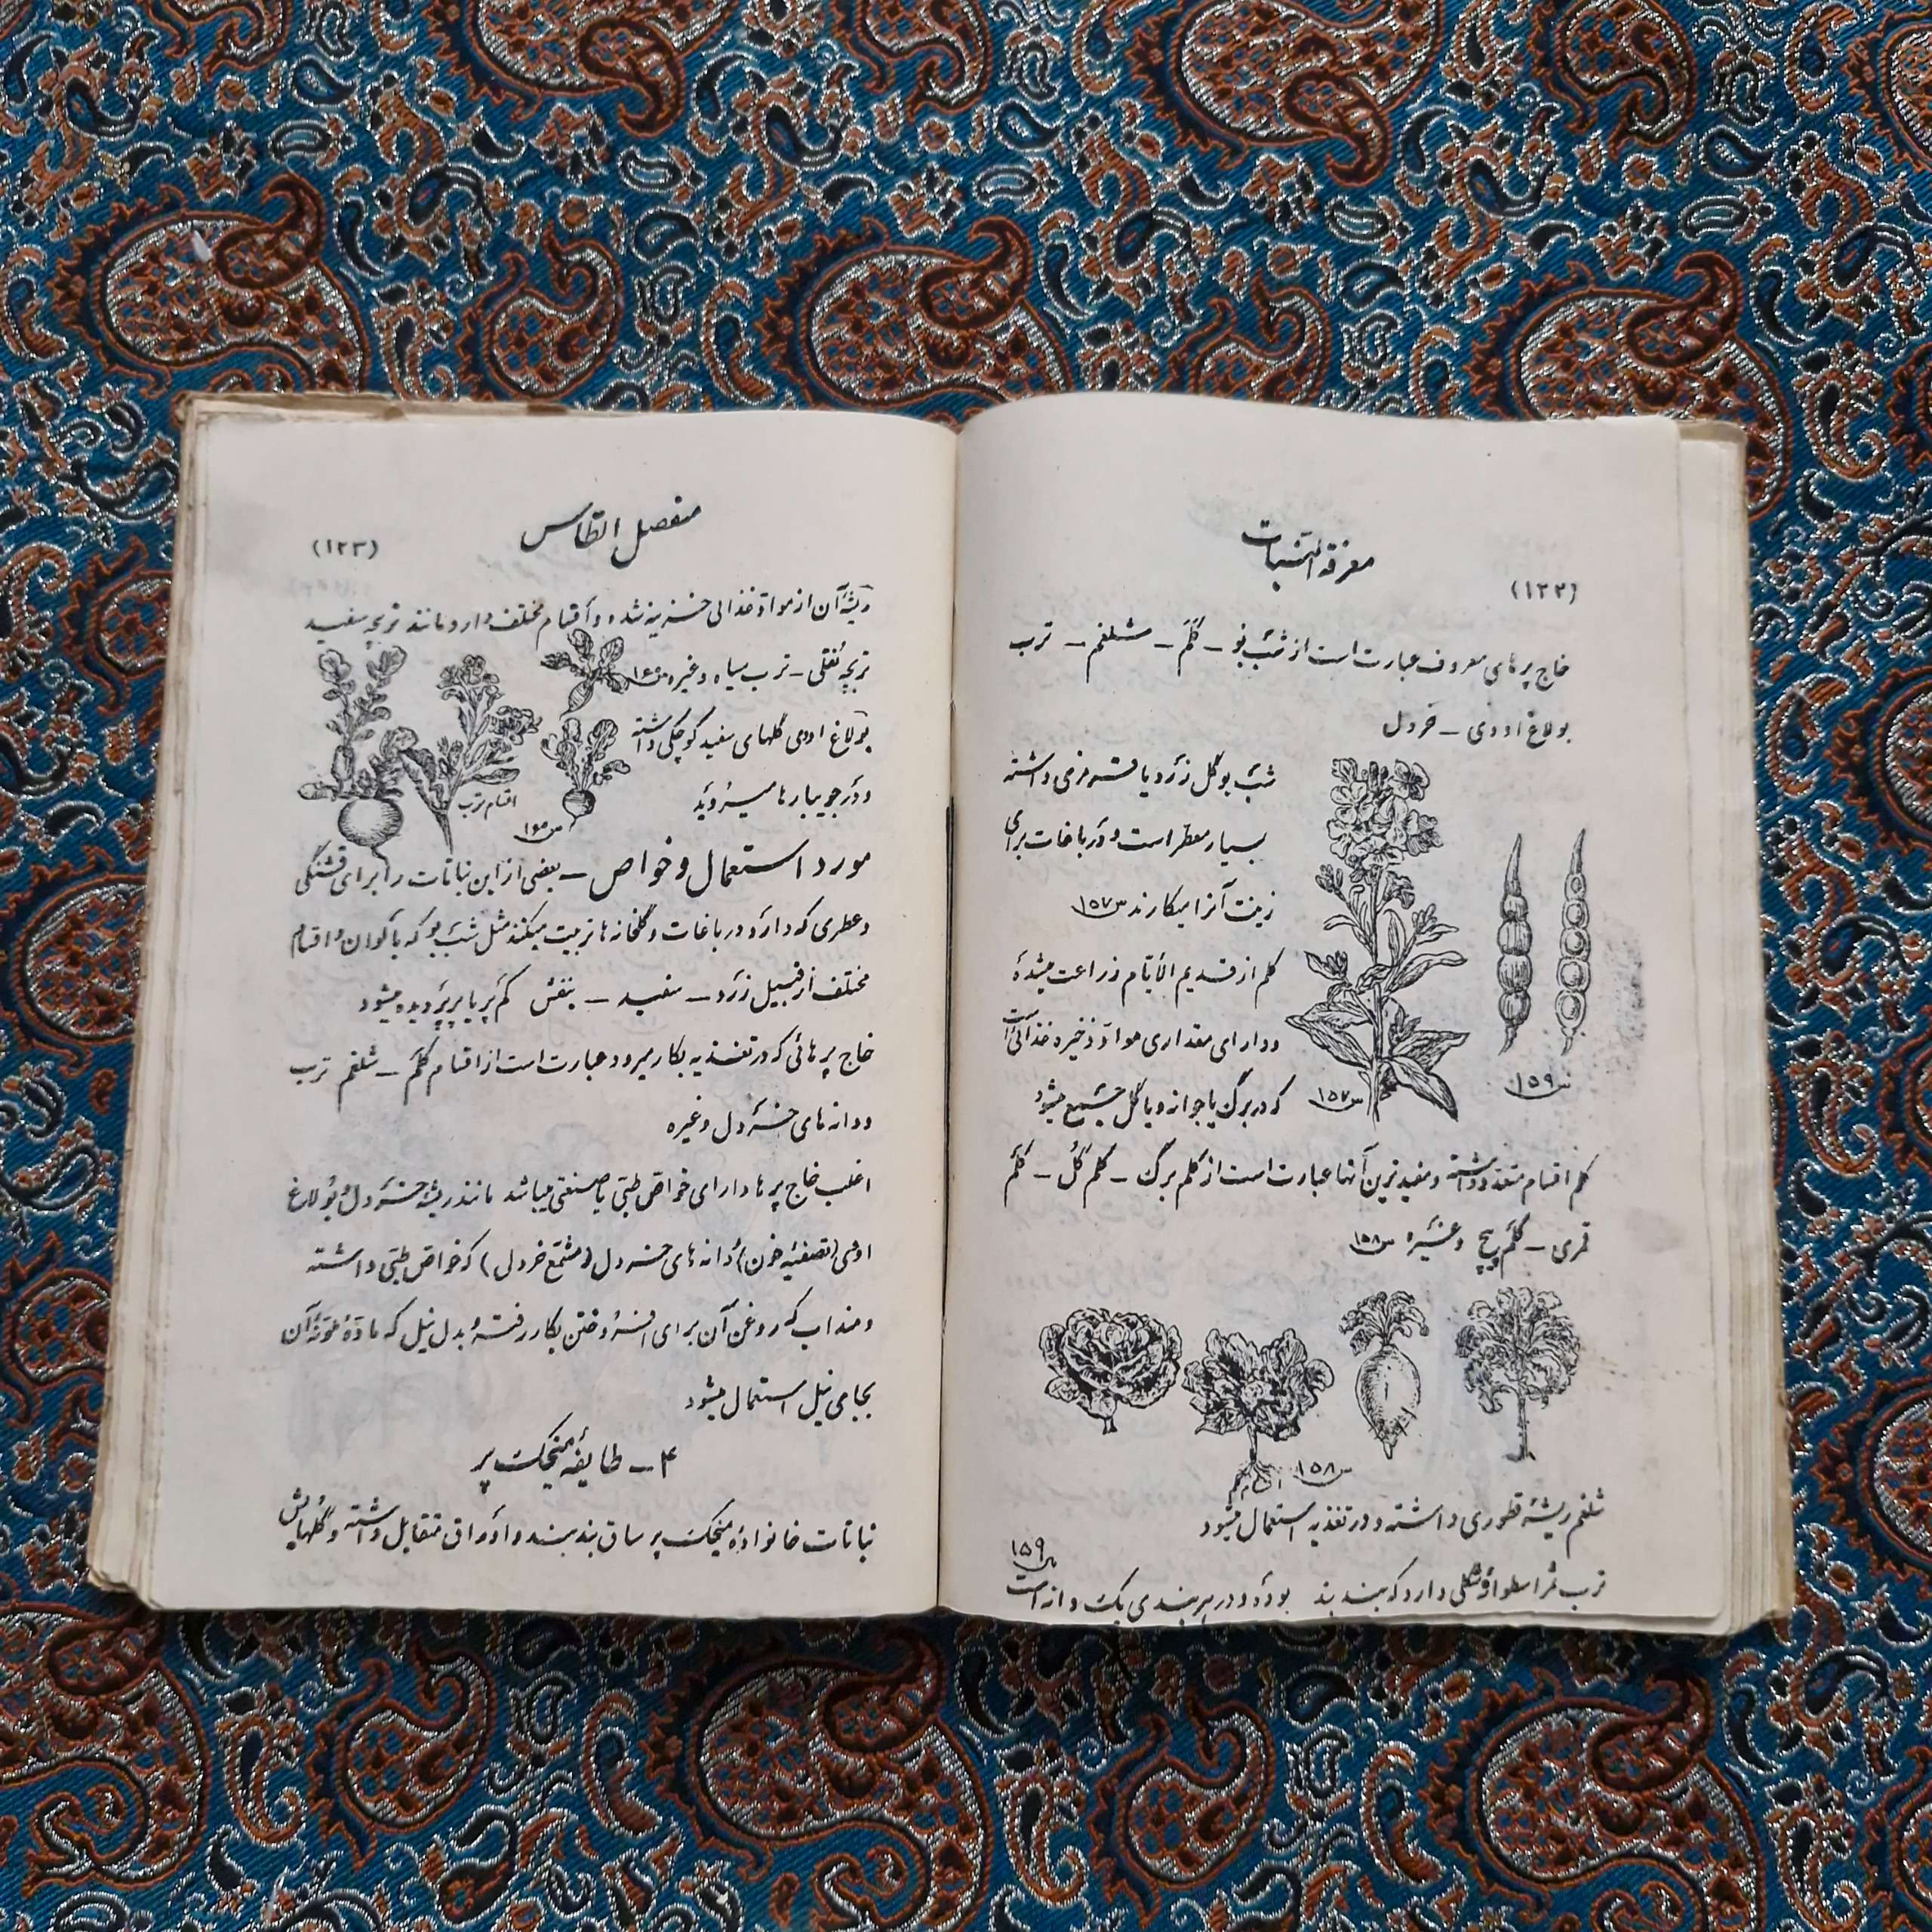 معرفة النباتات
(۱۲۲)
خاج پر های معروف عبارت است از شب بو – کلم – شلغم – ترب
بولاغ اودی – خردل
شب بو گل زرد یا قرمزی داشته
بسیار معطر است و در باغات برای
زینت آنرا میکارند س ۱۵۷
کلم از قدیم الأیام زراعت میشده
و دارای مقداری مواد ذخیره غذائی است
که در برگ یا جوانه و یا گل جمع میشود
س ۱۵۷
س ۱۵۹
کلم اقسام متعدد داشته و مفید ترین آنها عبارت است از کلم برگ – کلم گل – کلم
قمری – کلم پیچ و غیره س ۱۵۸
اقسام کلم
س ۱۵۸
شلغم ریشهٔ قطوری داشته و در تغذیه استعمال میشود
ترب ثمر استوانه شکلی دارد که بند بند بوده و در هر بندی یک دانه است
س ۱۵۹
منفصل الکاس
(۱۲۳)
ریشهٔ آن از مواد غذائی خزینه شده و اقسام مختلف دارد مانند تربچه سفید
تربچه نقلی – ترب سیاه و غیره س ۱۶۰
بولاغ اودی گلهای سفید کوچکی داشته
و در جویبارها میروید
اقسام ترب
مورد استعمال و خواص – بعضی از این نباتات را برای قشنگی
و عطری که دارد در باغات و گلخانه ها تربیت میکنند مثل شب بو که با الوان و اقسام
مختلف از قبیل زرد – سفید – بنفش کم پر یا پر پر دیده میشود
خاج پر هائی که در تغذیه بکار میرود عبارت است از اقسام کلم – شلغم ترب
و دانه های خردل و غیره
اغلب خاج پر ها دارای خواص طبی یا صنعتی میباشد مانند ریشه خردل و بولاغ
اوتی (تصفیهٔ خون) و دانه های خردل (مشمع خردل) که خواص طبی داشته
و منداب که روغن آن برای افروختن بکار رفته و بدل نیل که مادهٔ ملونهٔ آن
بجای نیل استعمال میشود
۴ – طایفهٔ میخک پر
نباتات خانوادهٔ میخک پر ساق بند بند و اوراق متقابل داشته و گلهایش